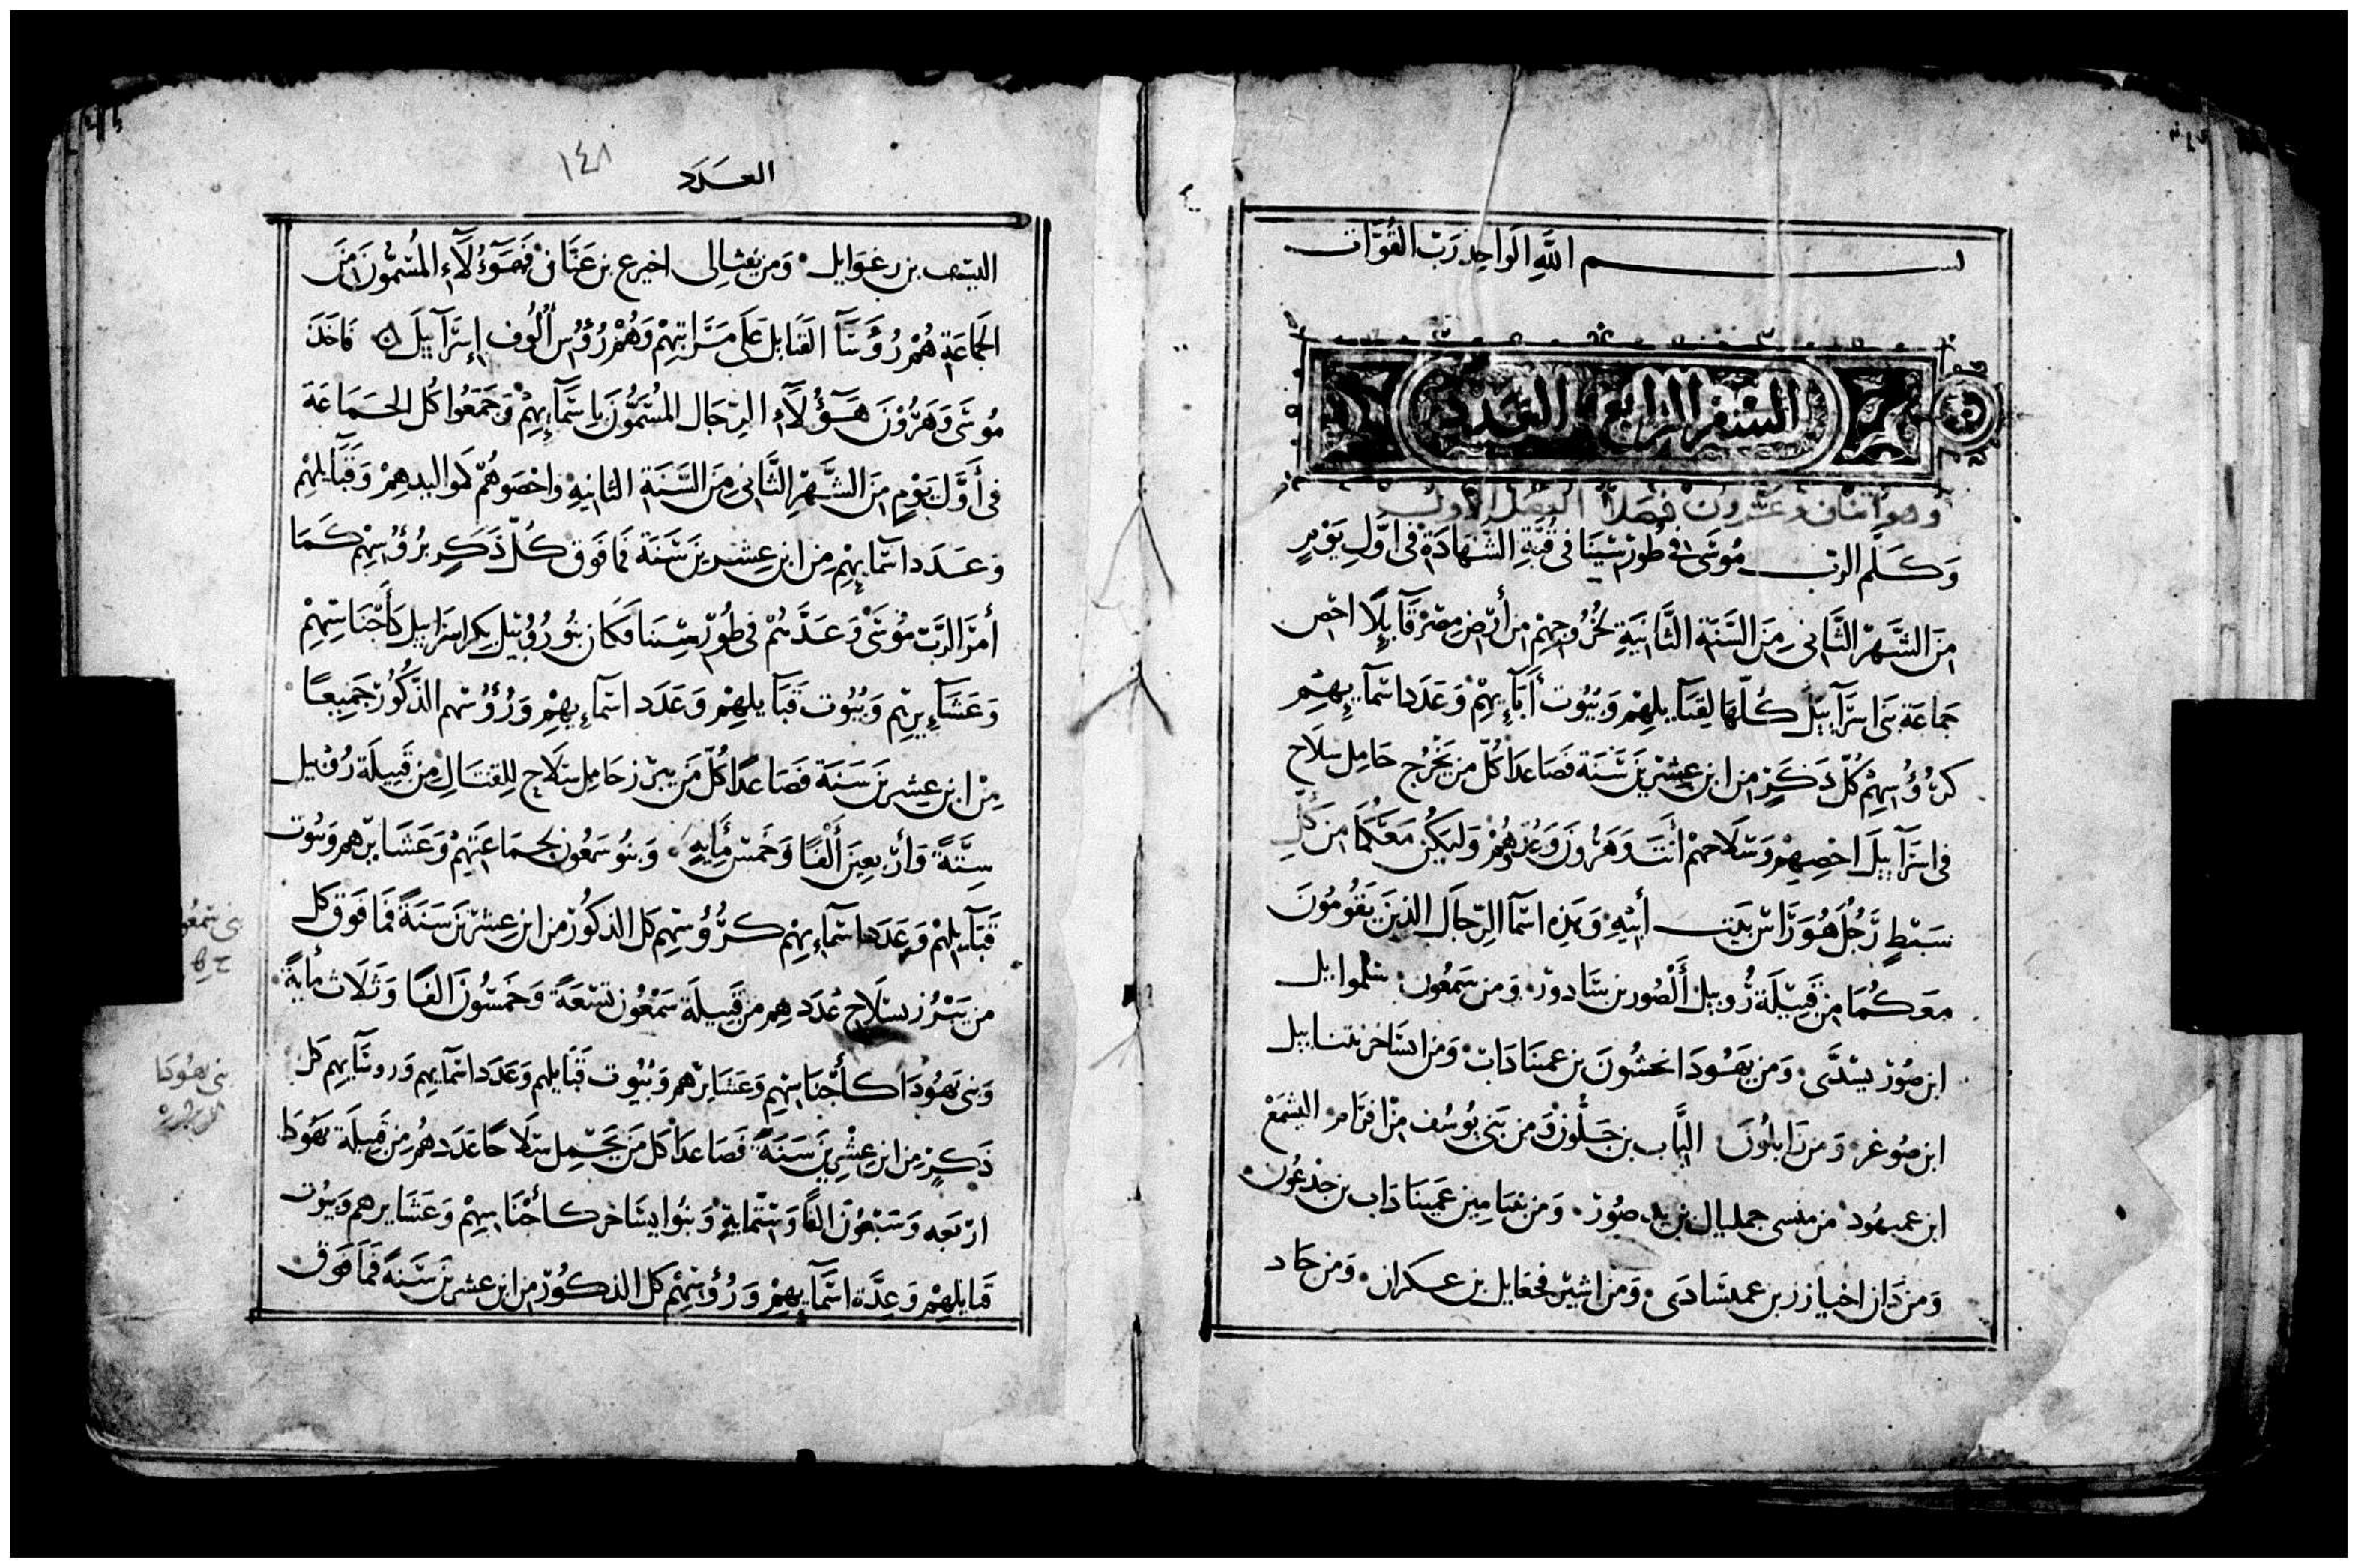 بسم الله الواحد رب القوات
السفر الرابع العدد
وهو اثنان وعشرون فصلا الفصل الاول
وَكَلَّم الرب مُوسَى فى طُور سِينَا فى قُبَّةِ الشهَادَة فى اوَّلِ يَوْمٍ
مِنَ الشَّهر الثَّانى مِنَ السَّنة الثَّانيَةِ لخُرُوجِهِمْ مِن أرْض مِصْرَ قَآيلًا احْص
جَمَاعَة بَنى اسرَآييل كُلّهَا لِقبَآيلهِمْ وَبيُوت أبَآءِيهِمْ وَعَدَد اسمآيهِم
كرُؤُسِهِمْ كُلّ ذَكَرٍ مِن ابن عِشْرِينَ سَنَة فصَاعدَا كُلّ مَن يَخْرُج حَامِل سِلَاح
فى اسرَآييلَ احْصِيهِمْ وسلاحهمْ انْتَ وَهَرُونَ وَعُدُّوهُمْ وَليَكُن مَعَكُمَا مِن كُلِّ
سَبْطٍ رَجُل هُوَ رَاس بَيت أبيْهِ وَهَذِه اسمَا الرِّجَال الذِينَ يَقُومُونَ
مَعَكُمَا مِن قَبِيْلَة رُوبيل ألْصُور بن سَادور وَمن سَمعُون سَلموايل
ابن صُور يسْدَّى وَمن يَهُودَا نحشُونَ بن عمينَادَاب وَمن ايسَاخر نتناييل
ابن صُوغر وَمن زَابلُونَ اليَاب بن حَلُون وَمن بَنى يُوسُف مِن افرَام اليشمَعْ
ابن عميهُود من منسى جمليال بن يد صُور وَمن بنيَامين عَمينَادَاب بن جدْعُون
وَمن دَان اخيازر بن عميشادَى وَمن اشير فجعايل بن عسكران وَمن جَاد
العَدَد
١٤٨
اليسف بن رغوَايل وَمن نفثالى اخيرع بن عَنَانى فَهَؤُلَآءِ المُسَمُّون مِنَ
الجَمَاعَةِ هُمْ رُؤَسَآ القَبَايل عَلَى مَرَاتبِهِمْ وَهُمْ رُؤُس أُلُوف إسرَآييلَ فَاخَذَ
مُوسَى وَهَرُونَ هَؤُلَآءِ الرِّجَال المُسَمُّونَ بِاسمَآيهِمْ وَجَمَعُوا كُل الجَمَاعَةَ
فى أوَّل يَوْمٍ مِنَ الشَّهْرِ الثَّانى مِنَ السَّنَة الثانيةِ واحْصَوهُمْ كمواليدهِمْ وَقَبَآيلهِمْ
وَعَدَد اسمَآيهِمْ مِن ابن عِشرينَ سَنَة فمَا فَوق كُلّ ذَكَرٍ برُؤُسِهِمْ كَمَا
أمَرَ الرَّبّ مُوسَى وَعَدَّهُمْ فى طُور سِينَا فكَان بنُو رُوبيْل بكر اسرَاييل كَأجْنَاسِهِمْ
وَعَشَآيرِهِم وَبيُوت قَبَآيلهِمْ وَعَدَد اسمآءِيهِمْ وَرُؤُسهم الذكُور جَمِيعًا
مِنْ ابن عِشرينَ سَنَة فصَاعدًا كُلّ مَن يبرز حَامِل سِلَاح لِلقتَالِ مِن قَبيلَة رُوبيل
سِتَّةً وَأرْبعِينَ ألْفًا وَخَمسْ مِأيةٍ وَبنُو سَمعُون بجمَاعَتِهِمْ وَعَشَايرهم وَبيُوت
قَبَآيلهِمْ وَعَدَد اسمآءِيهِمْ كرُؤُسِهم كل الذكُور من ابن عِشْرينَ سَنَةً فمَا فَوق كل
من يَبْرُز بسلَاحٍ عَدَدهم من قَبيلَة سَمْعُون تسْعَةً وَخمسُونَ الفًا وَثَلَاث مأيةً
وَبَنى يَهُودَا كأجْنَاسهِم وَعَشَايرهم وَبيُوت قبَايلهم وَعَدَد اسمآيهم وَروسَآيهِم كل
ذَكَرٍ مِن ابن عِشْرِينَ سَنَة فصَاعدًا كل مَن يَحْمِل سلَاحًا عَدَدهُمْ مِن قَبيلَة يَهُودَا
ارْبَعَه وَسَبْعُون الفًا وَسِتّمايةٍ وَبنُوا ايسَاخر كأجْنَاسِهِمْ وَعَشَايرهم وَبيُوت
قَبايلهِمْ وَعِدَّة اسمَآيهِمْ وَرُؤُسِهِمْ كل الذكُور من ابن عشرينَ سَنةً فمَا فَوق
بنى سمعو
بنى يهُودَا